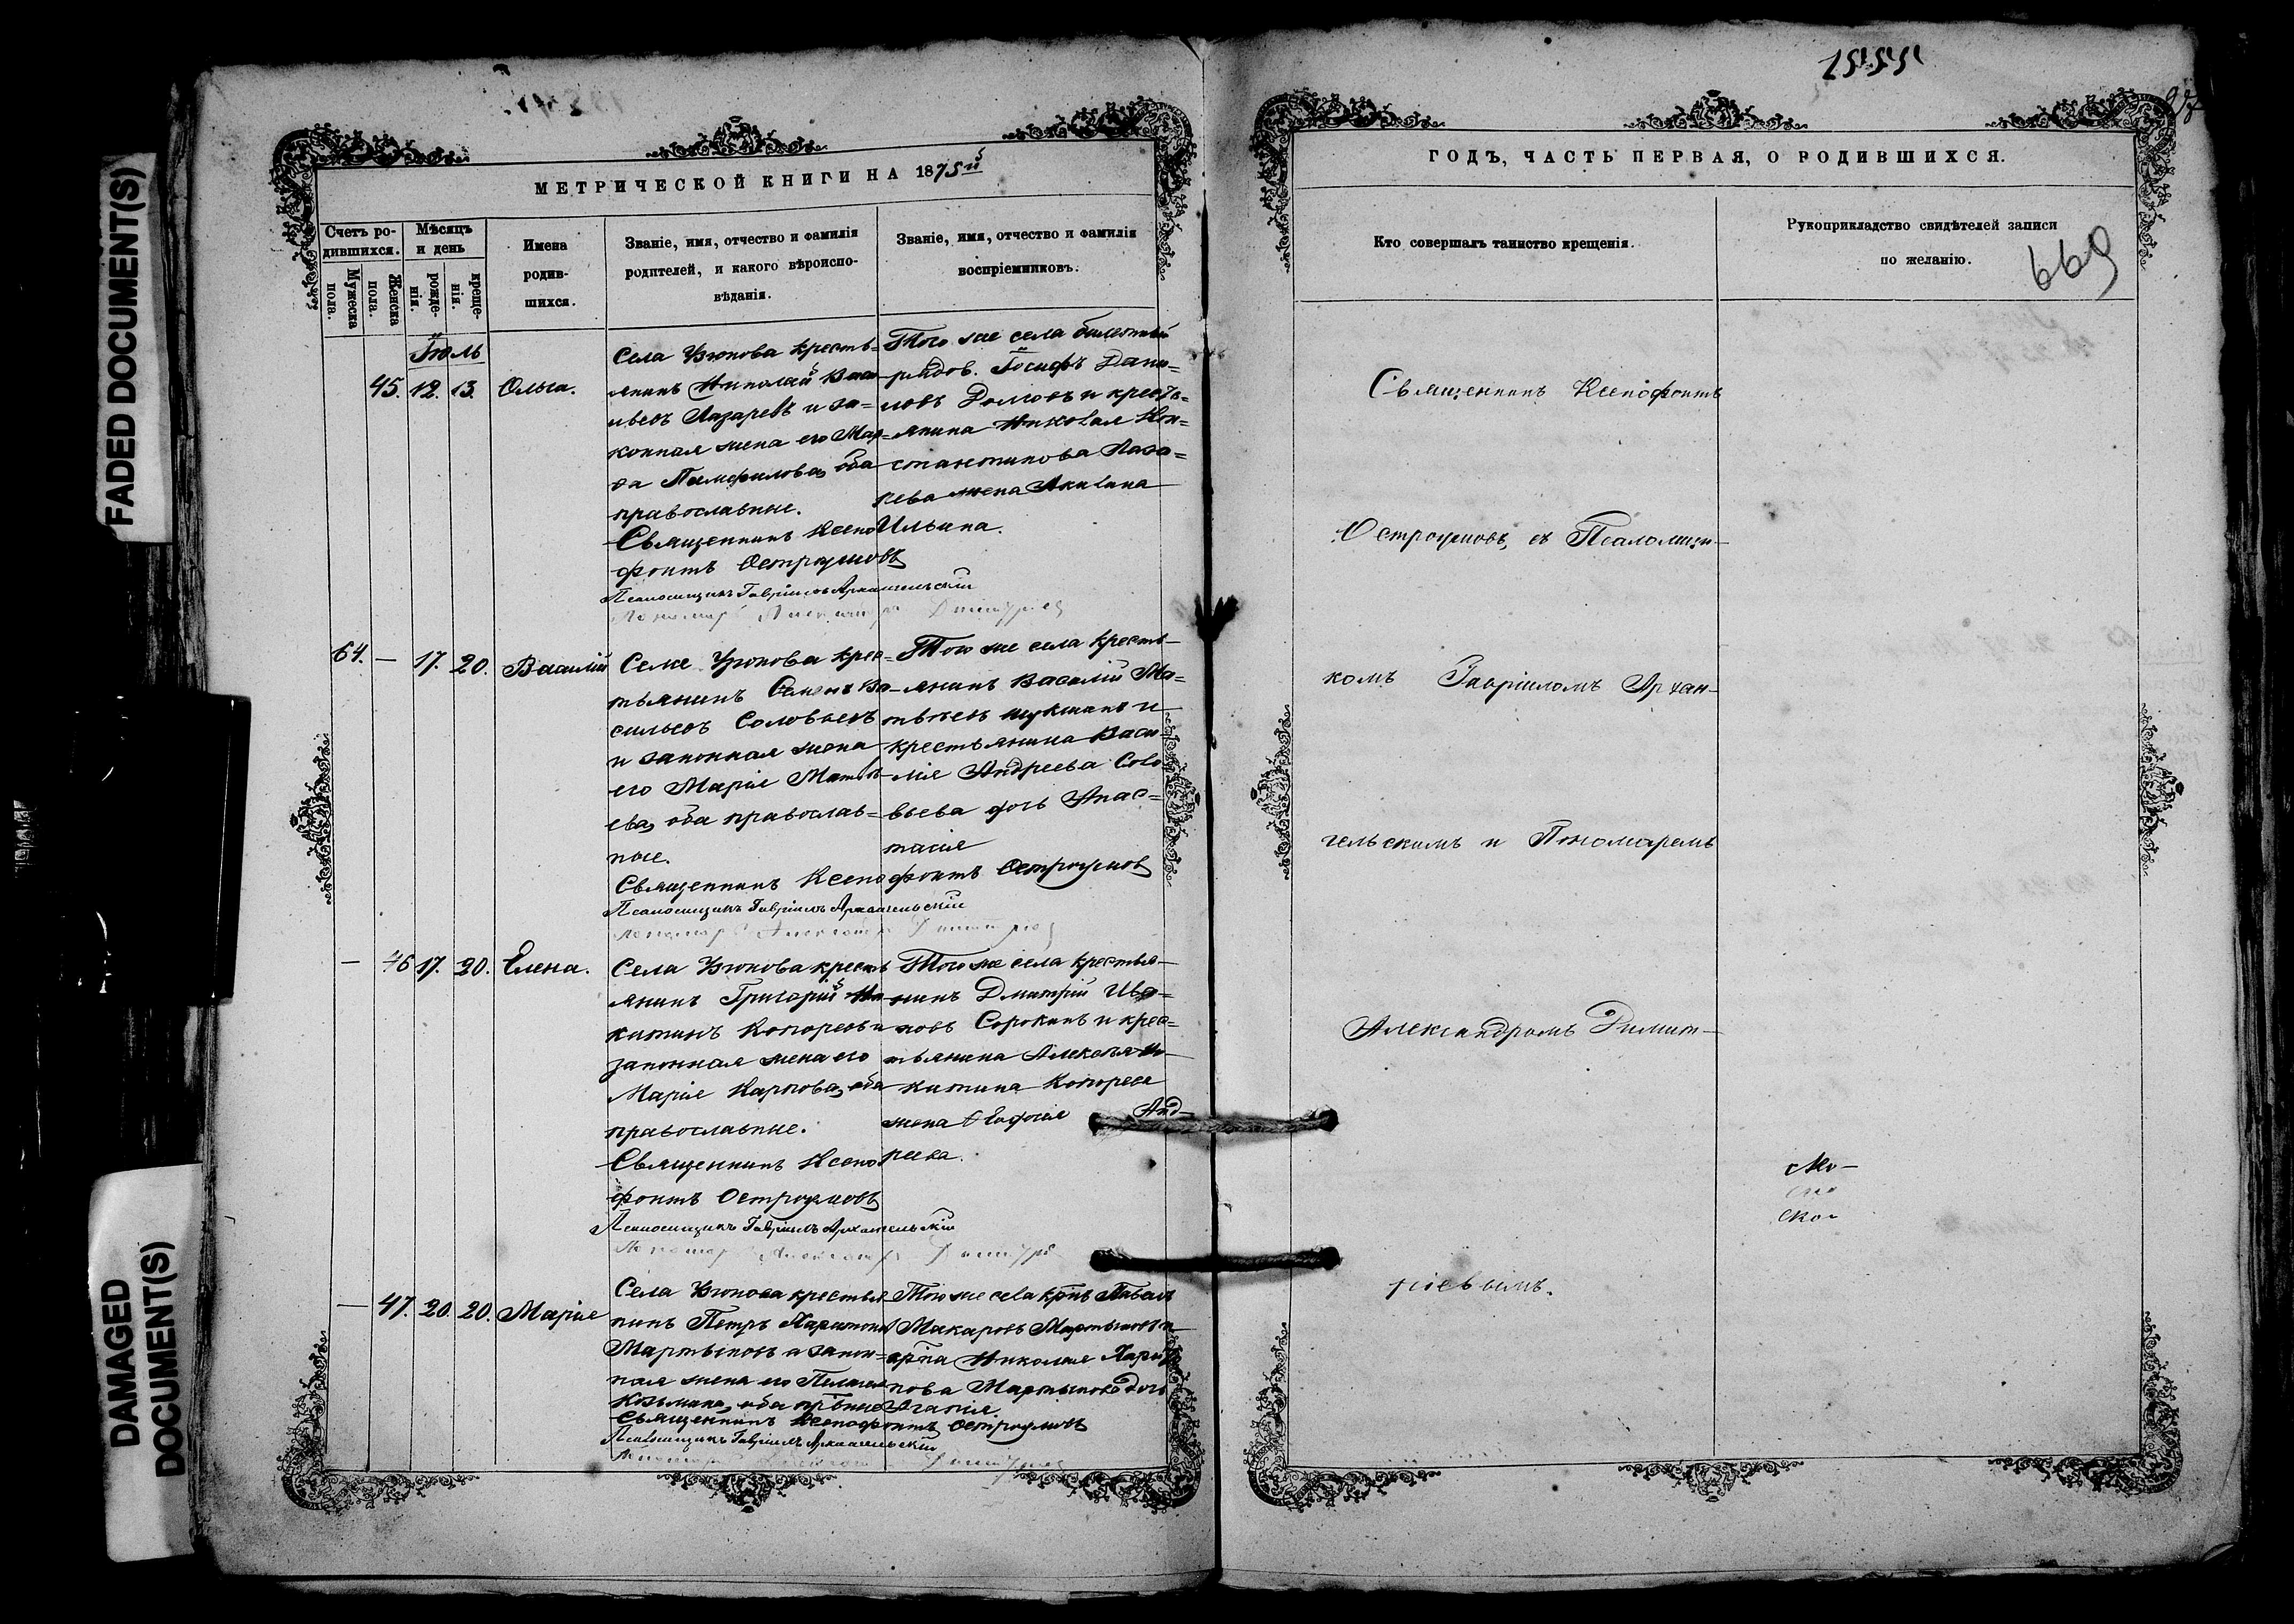 FADED DOCUMENT(S)
DAMAGED
DOCUMENT(S)
МЕТРИЧЕСКОЙ КНИГИ НА 1875й
Счетъ ро-
дившихся.
Мужеска
пола.
Женска
пола.
Мѣсяцъ
и день
рожде-
нія.
креще-
нія.
Имена
родив-
шихся.
Званіе, имя, отчество и фамилія
родителей, и какого вѣроиспо-
вѣданія.
Званіе, имя, отчество и фамилія
воспріемниковъ.
Іюль
45. 12. 13. Ольга.
Села Урюпова кресть-
янинъ Николай Васи-
льевъ Лазаревъ и за-
конная жена его Мар-
ѳа Памфилова, оба
православные.
Священникъ Ксено
фонтъ Остроумовъ
Псаломщикъ Гавріилъ Архангельскій
Пономарь Александръ Димитріев
Того же села билетный
рядов. Іосифъ Дани-
ловъ и кресть-
янина Николая Кон-
стантинова Лаза-
рева жена Акилина
Ильина.
64. — 17. 20. Василій
Села Урюпова крес-
тьянинъ Семенъ Ва-
сильевъ Соловьевъ
и законная жена
его Марія Матвѣ-
ева, оба православ-
ные.
Священникъ Ксенофонтъ Остроумов
Псаломщикъ Гавріилъ Архангельскій
Пономарь Александръ Димитріев
Того же села кресть-
янинъ Василій Ма-
твѣевъ и
крестьянина Васи-
лія Андреева Соло
вьева дочь Анас-
тасія
— 46 17. 20. Елена.
Села Урюпова кресть
янинъ Григорій Ни
китинъ и
законная жена его
Марія Карпова, оба
православные.
Священникъ Ксено
фонтъ Остроумовъ
Псаломщикъ Гавріилъ Архангельскій
Пономарь Александръ Димитріев
Того же села крестья-
нинъ Дмитрій Ива-
новъ Сорокинъ и крес-
тьянина Алексѣя Ни-
китина
жена Анд-
реева.
— 47. 20. 20. Марія
Села Урюпова крестья
нинъ Петръ Харитоновъ
Мартыновъ и закон-
ная жена его Пелагея
Козьмина, оба
Священникъ Ксенофонтъ Остроумовъ
Псаломщикъ Гавріилъ Архангельскій
Пономарь Димитріев
Того же села Павелъ
Макаровъ Мартыновъ и
Николая Харито
нова Мартынова дочь
Агапія.
1555
669
ГОДЪ, ЧАСТЬ ПЕРВАЯ, О РОДИВШИХСЯ.
Кто совершалъ таинство крещенія.
Рукоприкладство свидѣтелей записи
по желанію.
Священникъ Ксенофонтъ
Остроумовъ, съ Псаломщи-
комъ Гавріиломъ Архан-
гельскимъ и Пономаремъ
Александромъ Димит-
ріевымъ.